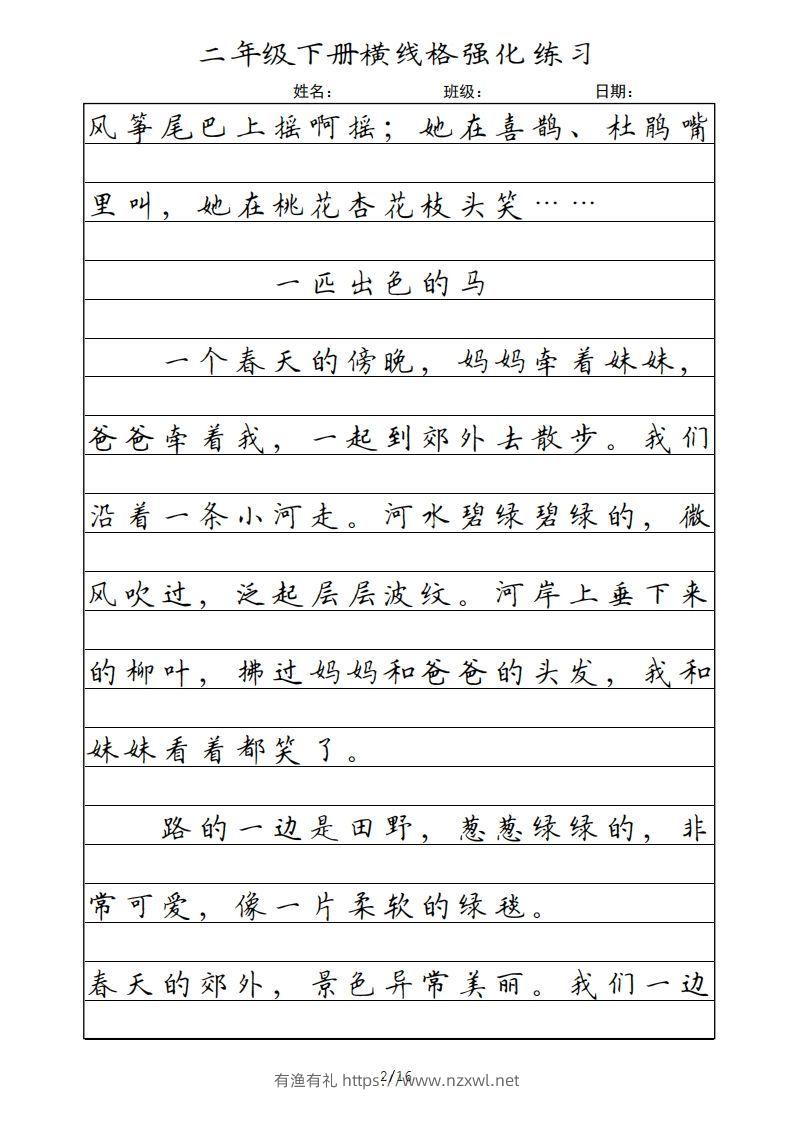 二年级下册横线格强化练习
姓名： 班级： 日期：
风筝尾巴上摇啊摇；她在喜鹊、杜鹃嘴
里叫，她在桃花杏花枝头笑……
一匹出色的马
一个春天的傍晚，妈妈牵着妹妹，
爸爸牵着我，一起到郊外去散步。我们
沿着一条小河走。河水碧绿碧绿的，微
风吹过，泛起层层波纹。河岸上垂下来
的柳叶，拂过妈妈和爸爸的头发，我和
妹妹看着都笑了。
路的一边是田野，葱葱绿绿的，非
常可爱，像一片柔软的绿毯。
春天的郊外，景色异常美丽。我们一边
2/16
有渔有礼 https://www.nzxwl.net